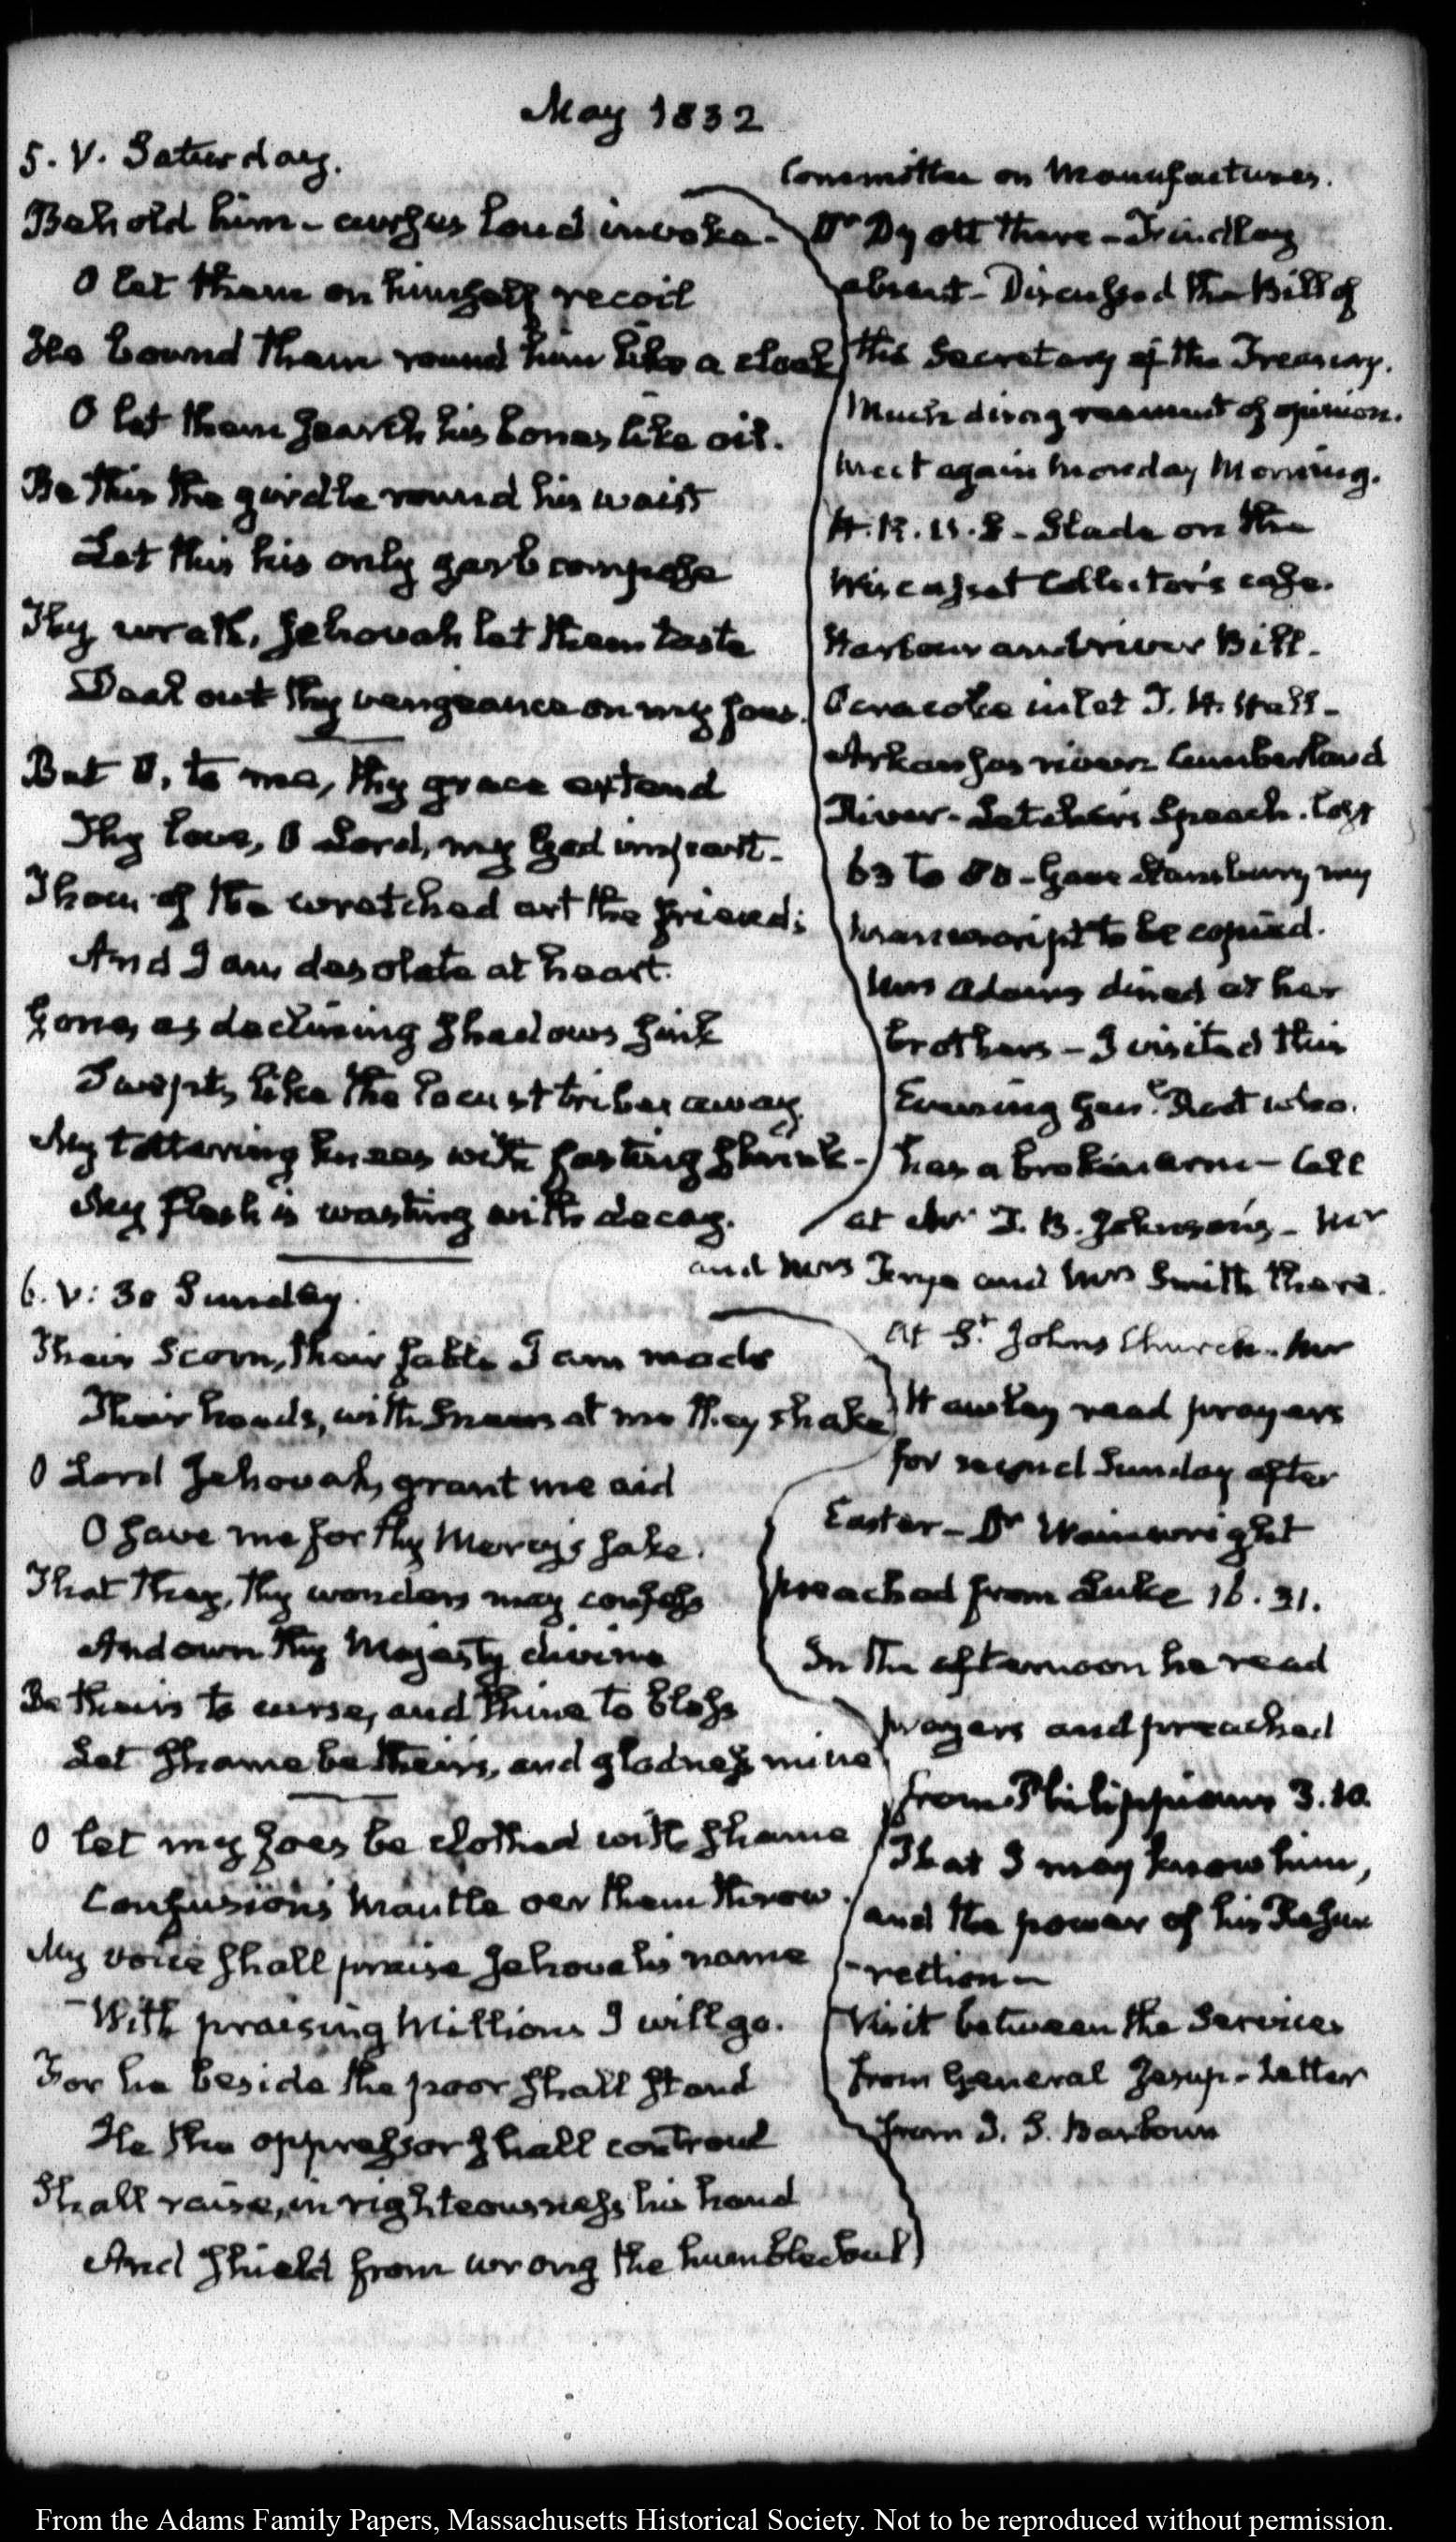 May 1832
5. V. Saturday.
Behold him - curses loud invoke -
O let them on himself recoil
He bound them round him like a cloak
O let them search his bones like oil.
Be this the girdle round his waist
Let this his only garb compose
Thy wrath, Jehovah let them taste
Deal out thy vengeance on my foes.
But O, to me, thy grace extend
Thy love, O Lord, my God impart.
Thou of the wretched art the friend;
And I am desolate at heart.
Gone, as declining shadows sink
Swept, like the locust tribes away
My tottering knees with fasting shrink -
My flesh is wasting with decay.
Committee on Manufactures.
Dr Dyott there - Findlay
absent - Discussed the Bill of
the Secretary of the Treasury.
Much disagreement of opinion.
Meet again Monday Morning.
H. R. U. S - Slade on the
Wiscasset Collector's case.
Harbour and river Bill -
Ocracoke inlet T. H. Hall -
Arkansas river Cumberland
River - Letcher's Speech. lost
63 to 80 - Gave Stansbury my
manuscript to be copied.
Mrs Adams dined at her
brothers - I visited this
Evening Genl. Root who
has a broken arm - Call
at Mr T. B. Johnson's - Mr
and Mrs Frye and Mrs Smith there.
6. V: 30 Sunday.
Their Scorn, their fable I am made
Their heads, with sneers at me they shake
O Lord Jehovah, grant me aid
O save me for thy Mercy's sake.
That they, thy wonders may confess
And own thy Majesty divine
Be theirs to curse, and thine to bless
Let shame be theirs, and gladness mine
O let my foes be clothed with shame
Confusion's Mantle oer them throw.
My voice shall praise Jehovah's name
With praising Millions I will go.
For he beside the poor shall stand
He the oppressor shall controul
Shall raise, in righteousness his hand
And shield from wrong the humble soul
At St. Johns Church. Mr
Hawley read prayers
for second Sunday after
Easter - Dr Wainwright
preached from Luke 16. 31.
In the afternoon he read
prayers and preached
from Philippians 3.10.
That I may know him,
and the power of his Resur
-rection -
Visit between the Services
from General Jesup - Letter
from J. S. Barbour
From the Adams Family Papers, Massachusetts Historical Society. Not to be reproduced without permission.